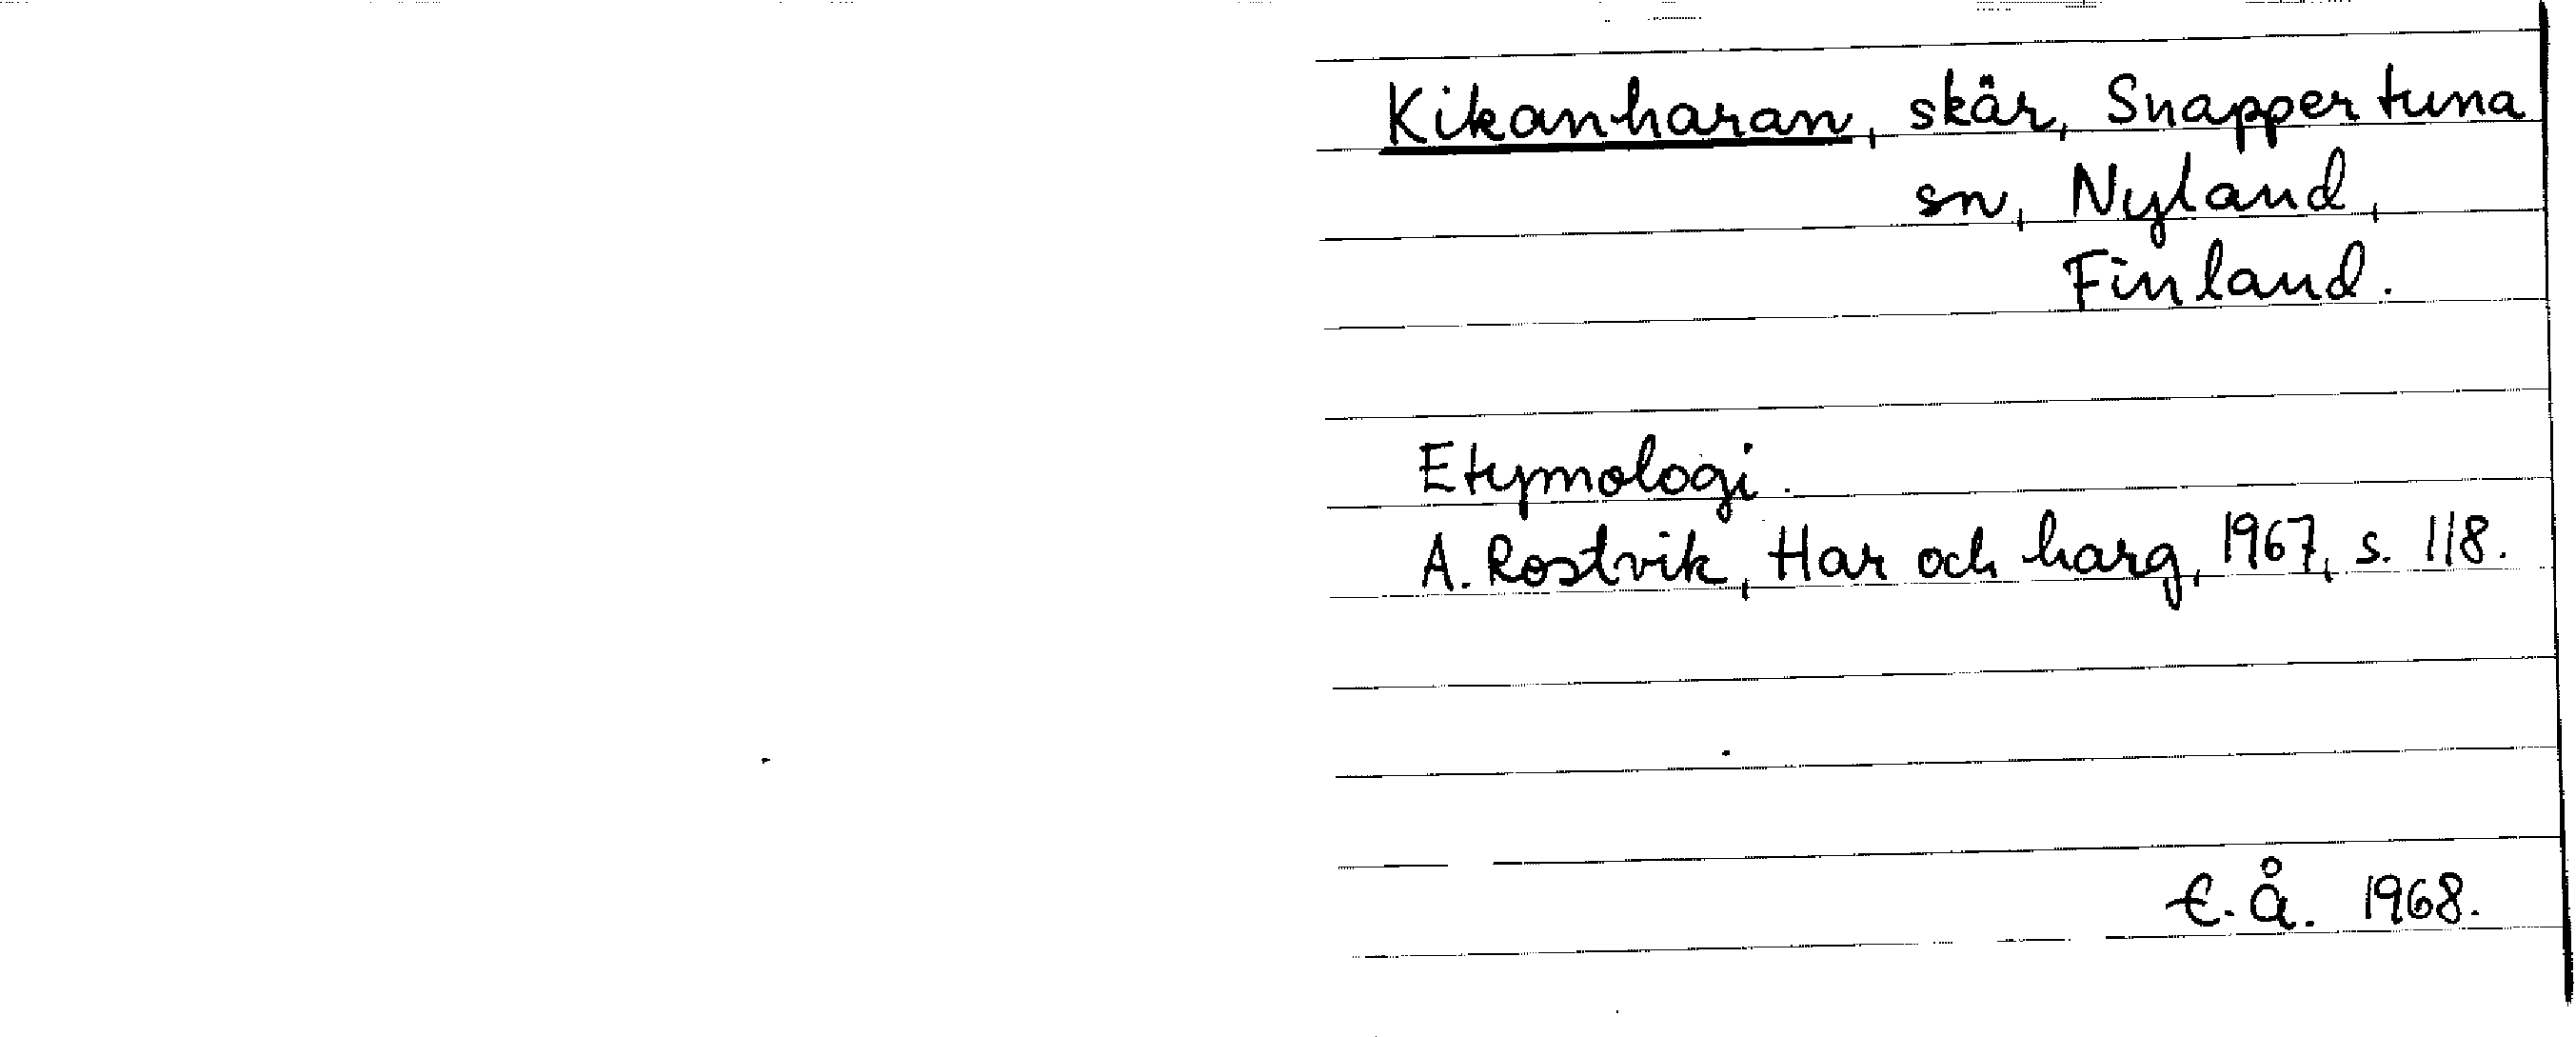 Kikanharan, skär, Snappertuna
sn, Nyland,
Finland.
Etymologi.
A. Rostvik, Har och harg, 1967, s. 118.
E. Å. 1968.